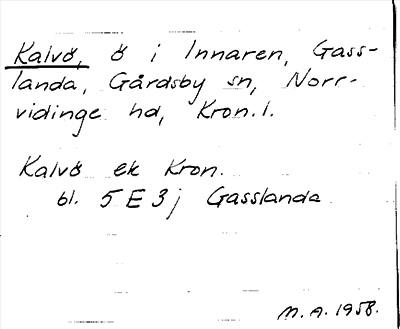 Kalvö, ö i Innaren, Gass-
landa, Gårdsby sn, Norr-
vidinge hd, Kron. l.
Kalvö ek Kron.
bl. 5 E 3 j Gasslanda
M. A. 1958.